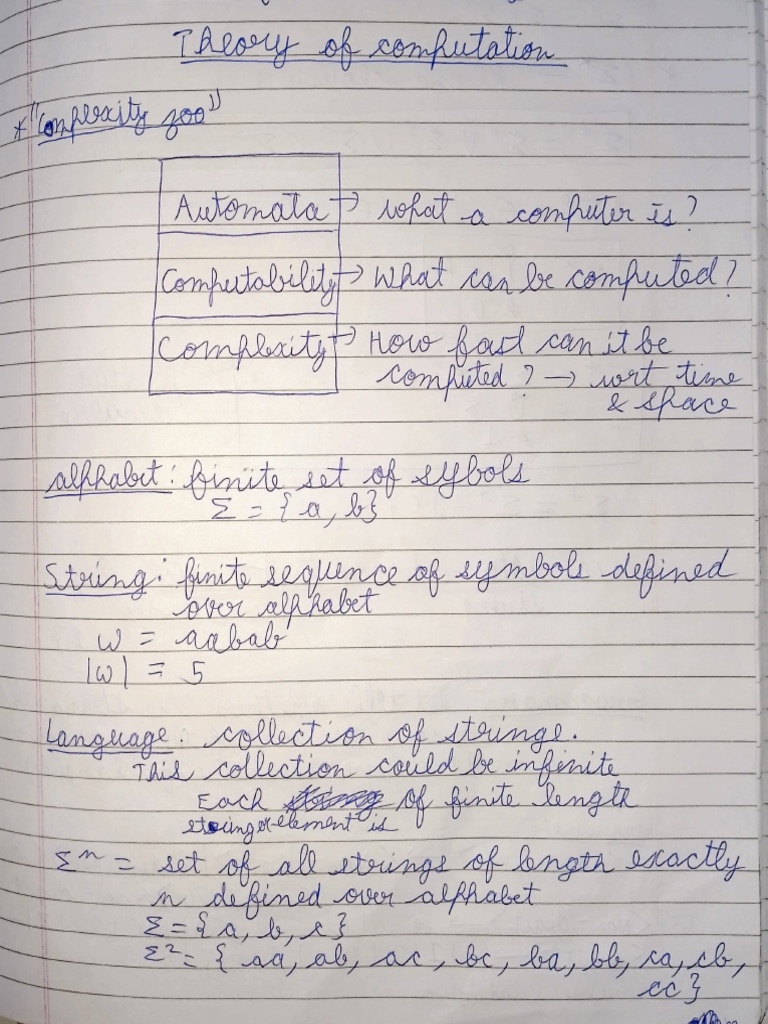 Theory of computation
* "Complexity zoo"
Automata → what a computer is?
Computability → What can be computed?
Complexity → How fast can it be
computed? → wrt time
& space
alphabet: finite set of sybols
Σ = {a, b}
String: finite sequence of symbols defined
over alphabet
w = aabab
|w| = 5
Language: collection of strings.
This collection could be infinite
Each of finite length
string or element is
Σⁿ = set of all strings of length exactly
n defined over alphabet
Σ = {a, b, c}
Σ² = { aa, ab, ac, bc, ba, bb, ca, cb,
cc}